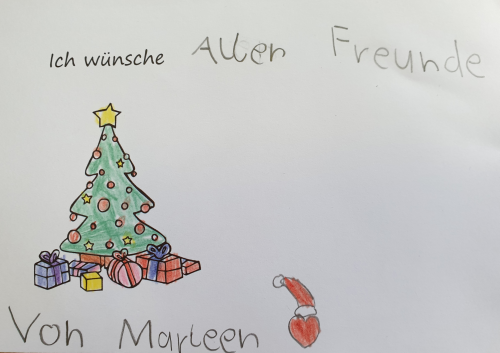 Ich wünsche Allen Freunde
Von Marleen